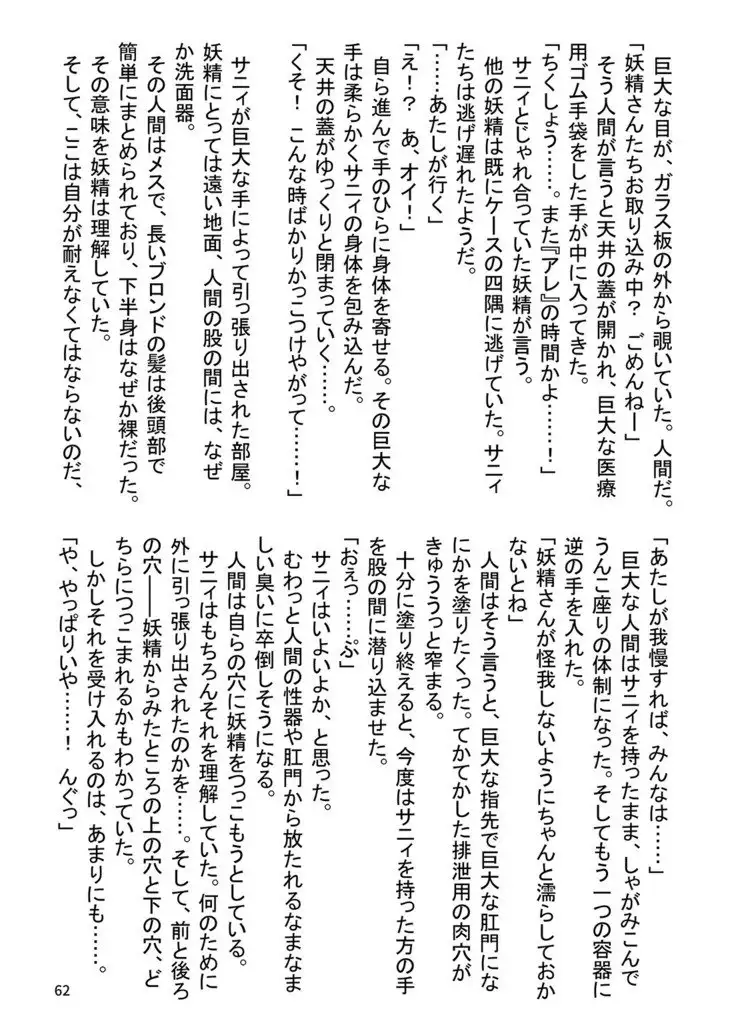 巨大な目が、ガラス板の外から覗いていた。人間だ。
「妖精さんたちお取り込み中？　ごめんねー」
そう人間が言うと天井の蓋が開かれ、巨大な医療
用ゴム手袋をした手が中に入ってきた。
「ちくしょう……。また『アレ』の時間かよ……！」
サニィとじゃれ合っていた妖精が言う。
他の妖精は既にケースの四隅に逃げていた。サニィ
たちは逃げ遅れたようだ。
「……あたしが行く」
「え！？　あ、オイ！」
自ら進んで手のひらに身体を寄せる。その巨大な
手は柔らかくサニィの身体を包み込んだ。
天井の蓋がゆっくりと閉まっていく……。
「くそ！　こんな時ばかりかっこつけやがって……！」
サニィが巨大な手によって引っ張り出された部屋。
妖精にとっては遠い地面、人間の股の間には、なぜ
か洗面器。
その人間はメスで、長いブロンドの髪は後頭部で
簡単にまとめられており、下半身はなぜか裸だった。
その意味を妖精は理解していた。
そして、ここは自分が耐えなくてはならないのだ、
「あたしが我慢すれば、みんなは……」
巨大な人間はサニィを持ったまま、しゃがみこんで
うんこ座りの体制になった。そしてもう一つの容器に
逆の手を入れた。
「妖精さんが怪我しないようにちゃんと濡らしておか
ないとね」
人間はそう言うと、巨大な指先で巨大な肛門にな
にかを塗りたくった。てかてかした排泄用の肉穴が
きゅううっと窄まる。
十分に塗り終えると、今度はサニィを持った方の手
を股の間に潜り込ませた。
「おぇっ……ぷ」
サニィはいよいよか、と思った。
むわっと人間の性器や肛門から放たれるなまなま
しい臭いに卒倒しそうになる。
人間は自らの穴に妖精をつっこもうとしている。
サニィはもちろんそれを理解していた。何のために
外に引っ張り出されたのかを……。そして、前と後ろ
の穴――妖精からみたところの上の穴と下の穴、ど
ちらにつっこまれるかもわかっていた。
しかしそれを受け入れるのは、あまりにも……。
「や、やっぱりいや……！　んぐっ」
62